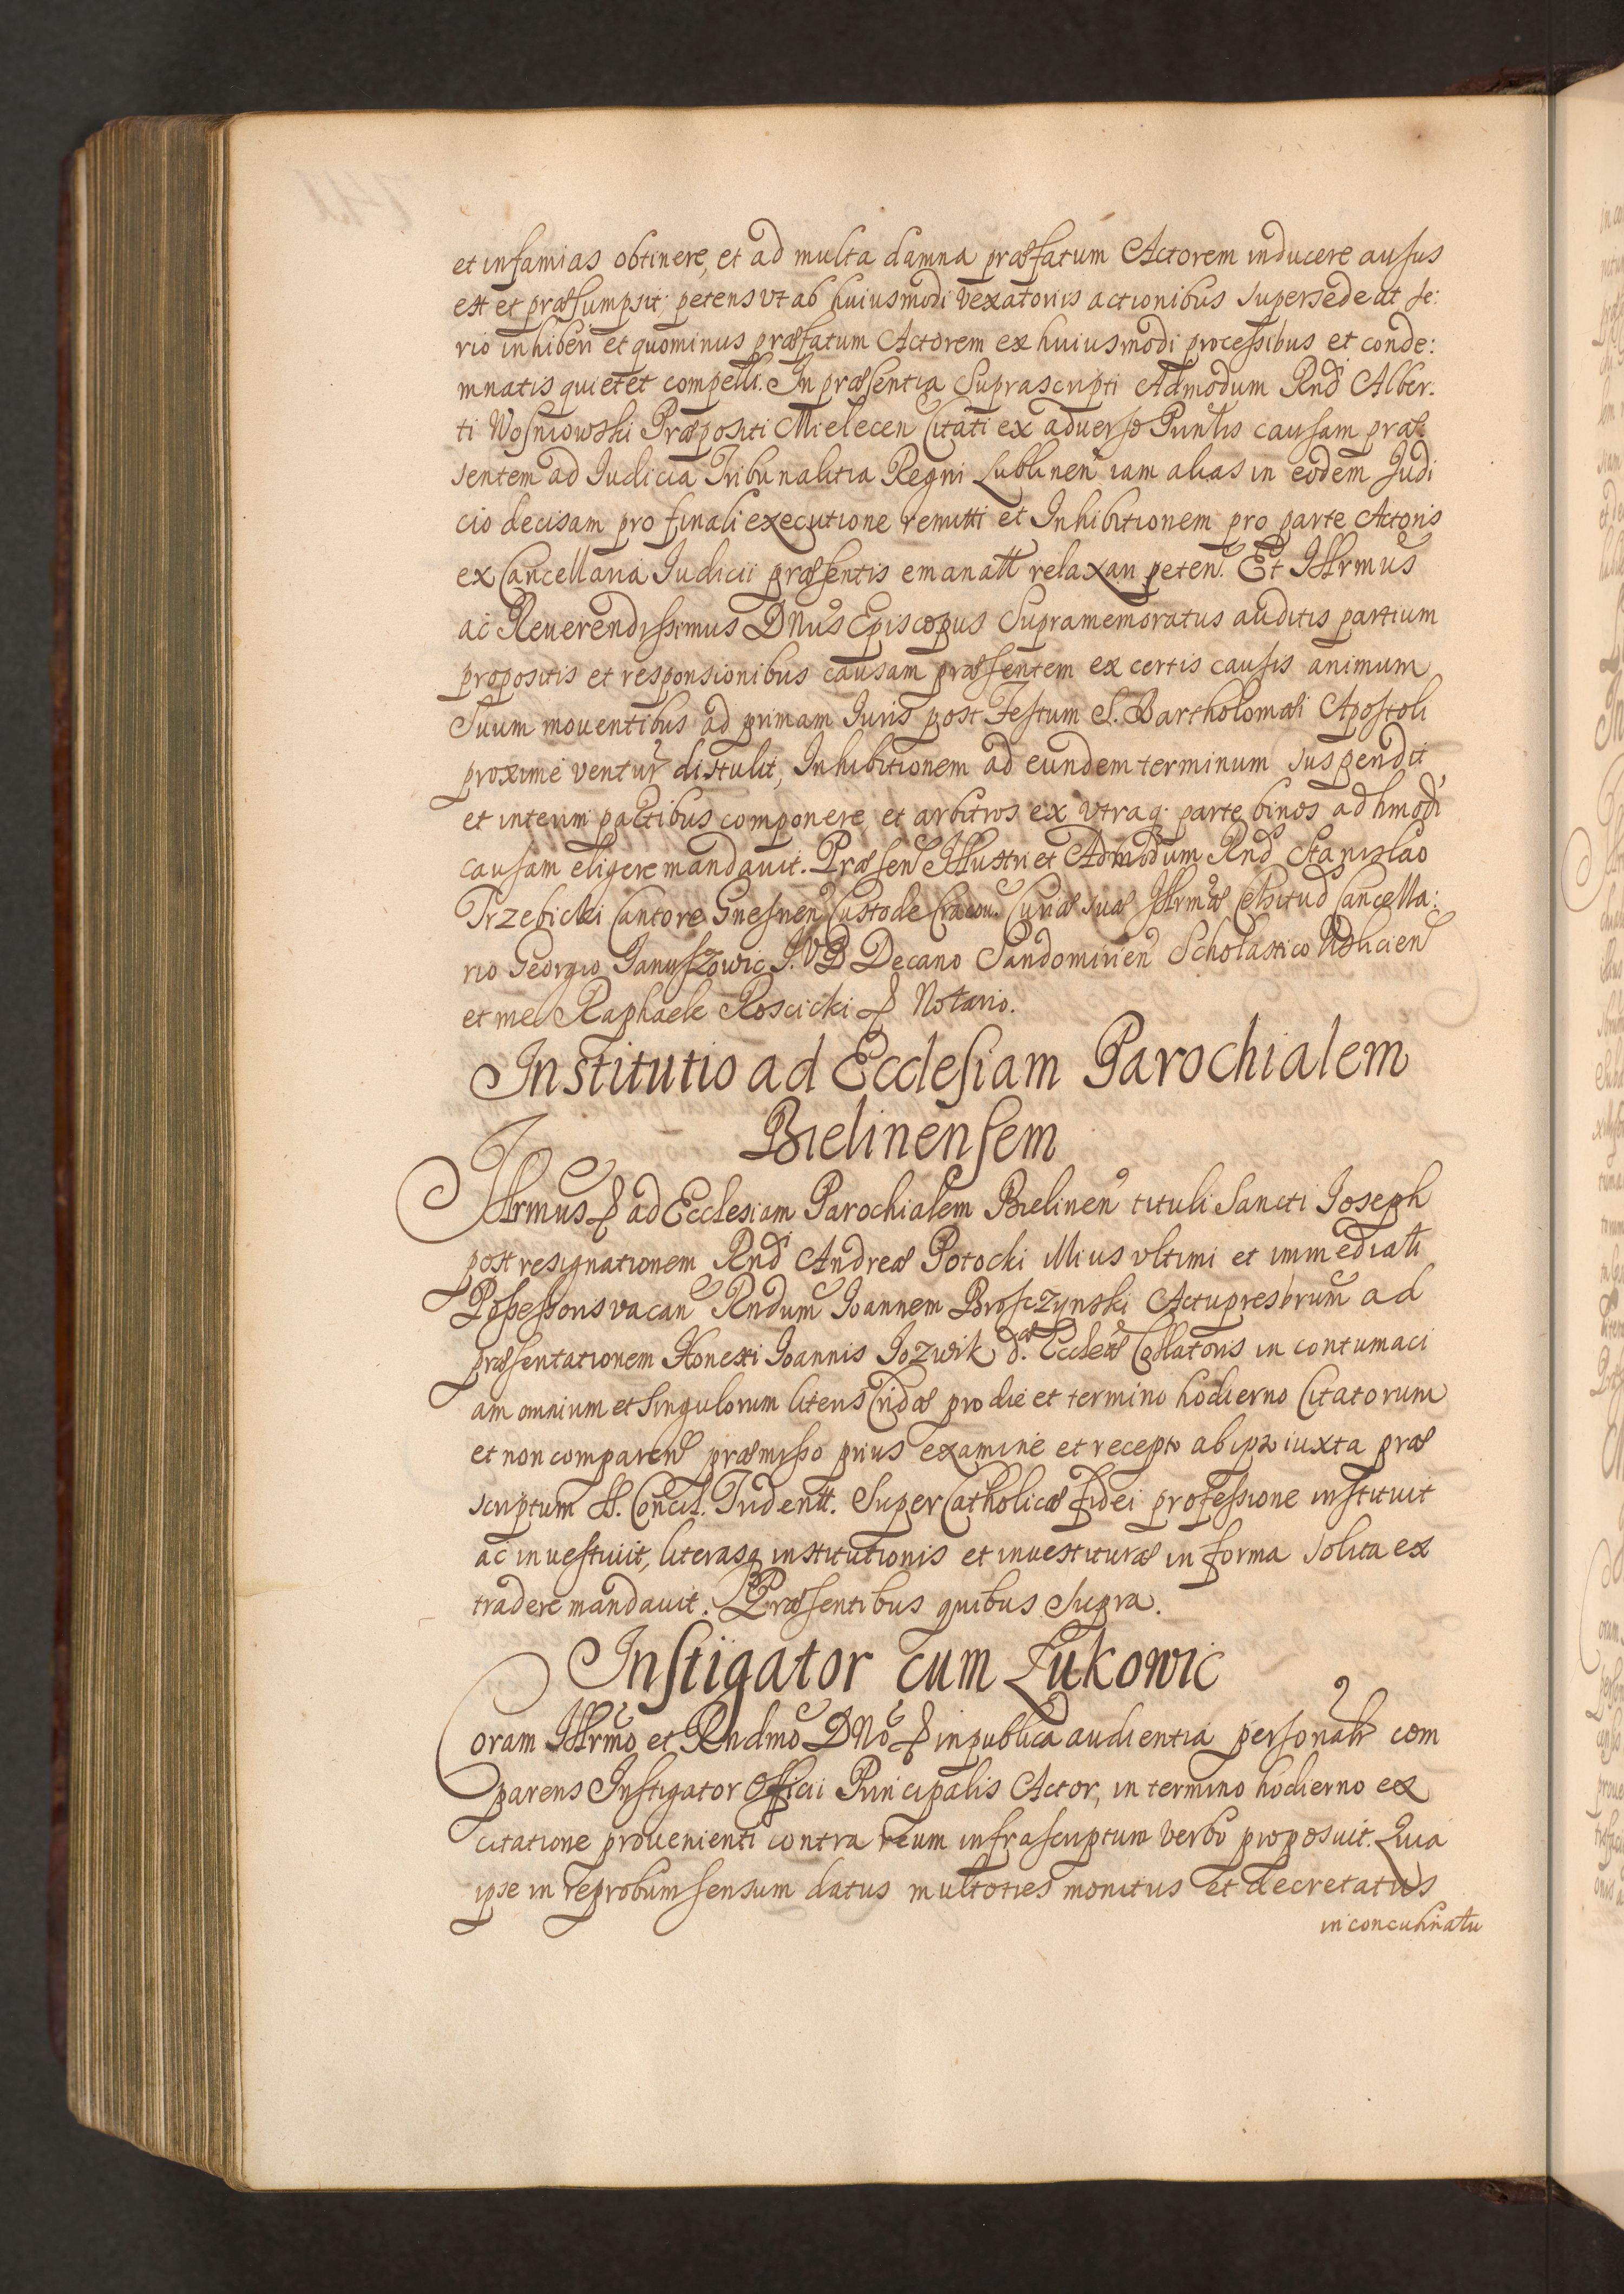 et infamias obtinere, et ad multa damna præfatum Actorem inducere ausus
est et præsumpsit; petens vt ab huiusmodi vexatoriis actionibus supersedeat se:
rio inhiberi et quominus præfatum Actorem ex huiusmodi processibus et conde:
mnatis quietet compelli. In præsentia Suprascripti Admodum Rndi Alber:
ti Wosniowski Præpositi Mielecen Citati ex aduerso causam præ:
sentem ad Iudicia Tribunalitia Regni Lublinen iam alias in eodem Judi
cio decisam pro finali executione remitti et Inhibitionem pro parte Actoris
ex Cancellaria Iudicii præsentis emanatt relaxari peten. Et Illrmus
ac Reuerendissimus DNus Episcopus Supramemoratus auditis partium
propositis et responsionibus causam præsentem ex certis causis animum
Suum mouentibus ad primam Iuris post Festum S. Bartholomæi Apostoli
proxime ventur distulit, Inhibitionem ad eundem terminum suspendit
et interim partibus componere, et arbitros ex vtraq parte binos ad hmodi
causam eligere mandauit. Præsen Illustri et Admodum Rnd Stanislao
Trzebicki Cantore Gnesnen Custode Cracou. Curiæ suæ Illrmæ Celsitud Cancella:
rio Georgio Januszowic J.VD Decano Sandomirien Scholastico
et me Raphaele Roscicki Notario.
Institutio ad Ecclesiam Parochialem
Bielinensem
Illrmus ad Ecclesiam Parochialem Bielinen tituli Sancti Ioseph
post resignationem Rndi Andreæ Potocki illius vltimi et immediati
Possessoris vacan Rndum Ioannem Brosczynski Actupresbrum ad
præsentationem Honesti Ioannis Jozwik d. Ecclæ Collatoris in contumaci
am omnium et singulorum literis Cridæ pro die et termino hodierno Citatorum
et non comparen præmisso prius examine et recepto ab ipso iuxta præ
scriptum SS. Concil. Tridentt. Super Catholicæ fidei professione instituit
ac inuestiuit, literasq institutionis et inuestituræ in forma solita ex
tradere mandauit. Præsentibus quibus supra.
Instigator cum Lukowic
Coram Illrmo et Rndmo DNo in publica audientia personalr com
parens Instigator Officii Principalis Actor, in termino hodierno ex
citatione prouenienti contra reum infrascriptum verbo proposuit. Quia
ipse in reprobum sensum datus multoties monitus et decretatus
in concubinatu